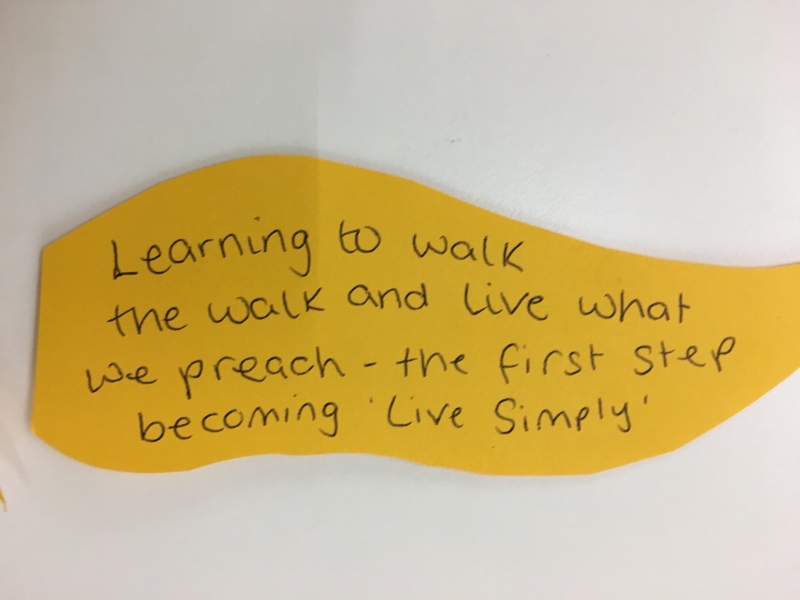 Learning to walk
the walk and live what
we preach - the first step
becoming 'Live Simply'